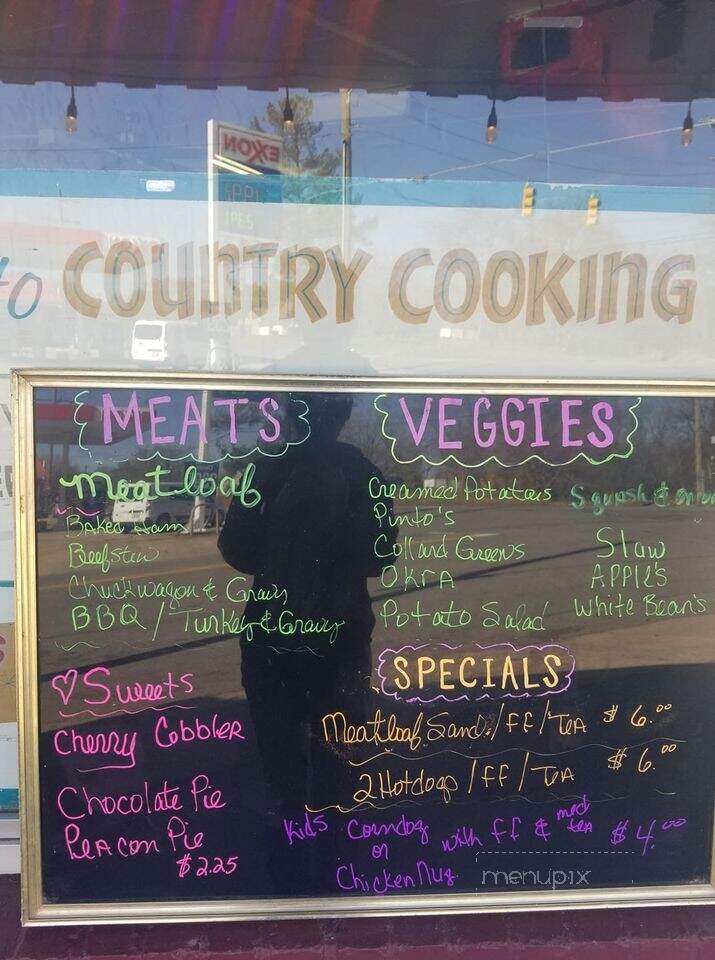 EXXON
to COUNTRY COOKING
MEATS
Meatloaf
BAKed Ham
Beefstew
Chuckwagon & Gravy
BBQ / Turkey & Gravy
VEGGIES
Creamed Potatoes Squash & onion
Pinto's
Collard Greens Slaw
OKrA APPle's
Potato Salad White Bean's
♡ Sweets
Cherry Cobbler
Chocolate Pie
PeAcan Pie
$2.25
SPECIALS
Meatloaf Sand. / FF / TeA $6.00
2 Hotdogs / FF / TeA $6.00
Kids Corndog with FF & med teA $4.00
or
Chicken Nug.
menupix